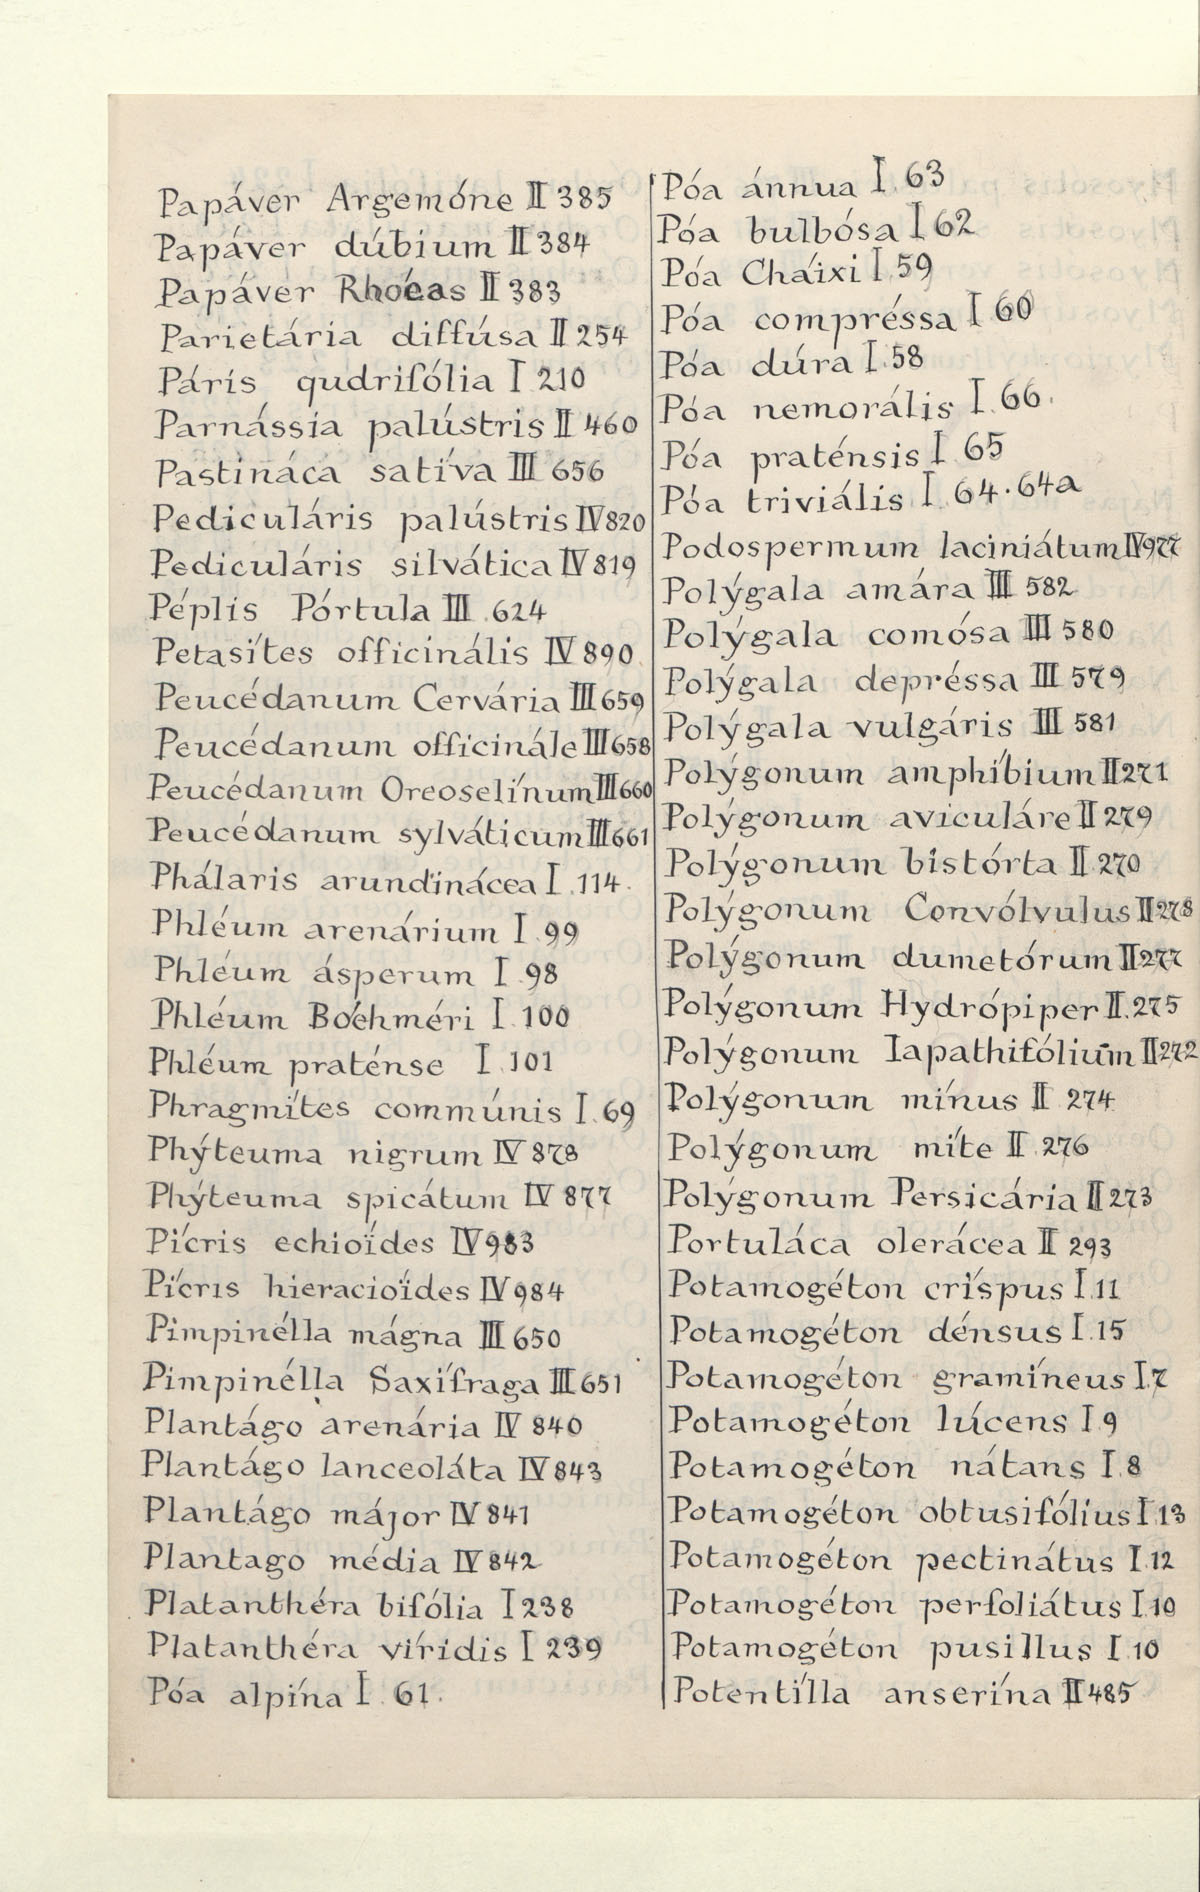 Papáver Argemóne II 385
Papáver dúbium II 384
Papáver Rhoéas II 383
Parietária diffúsa II 254
Páris qudrifólia I 210
Parnássia palústris II 460
Pastináca satíva III 656
Pediculáris palústris IV 820
Pediculáris silvática IV 819
Péplis Pórtula III .624
Petasítes officinális IV 890
Peucédanum Cervária III 659
Peucédanum officinále III 658
Peucédanum Oreoselínum III 660
Peucédanum sylváticum III 661
Phálaris arundinácea I .114.
Phléum arenárium I .99
Phléum ásperum I .98
Phléum Boéhméri I .100
Phléum praténse I .101
Phragmítes commúnis I .69
Phýteuma nigrum IV 878
Phýteuma spicátum IV 877
Pícris echioïdes IV 983
Pícris hieracioïdes IV 984
Pimpinélla mágna III 650
Pimpinélla Saxífraga III 651
Plantágo arenária IV 840
Plantágo lanceoláta IV 843
Plantágo májor IV 841
Plantago média IV 842
Platanthéra bifólia I 238
Platanthéra víridis I 239
Póa alpína I .61.
Póa ánnua I .63
Póa bulbósa I 62
Póa Cháixi I .59
Póa compréssa I .60
Póa dúra I .58
Póa nemorális I .66.
Póa praténsis I .65
Póa triviális I .64.64a
Podospermum laciniátum IV 977
Polýgala amára III 582
Polýgala comósa III 580
Polýgala depréssa III 579
Polýgala vulgáris III 581
Polýgonum amphíbium II 271
Polýgonum aviculáre II 279
Polýgonum bistórta II 270
Polýgonum Convólvulus II 278
Polýgonum dumetórum II 277
Polýgonum Hydrópiper II .275
Polýgonum lapathifólium II 272
Polýgonum mínus II 274
Polýgonum míte II .276
Polýgonum Persicária II 273
Portuláca olerácea II 293
Potamogéton críspus I .11
Potamogéton dénsus I .15
Potamogéton gramíneus I .7
Potamogéton lúcens I .9
Potamogéton nátans I .8
Potamogéton obtusifólíus I .13
Potamogéton pectinátus I .12
Potamogéton perfoliátus I .10
Potamogéton pusillus I .10
Potentílla anserína II 485